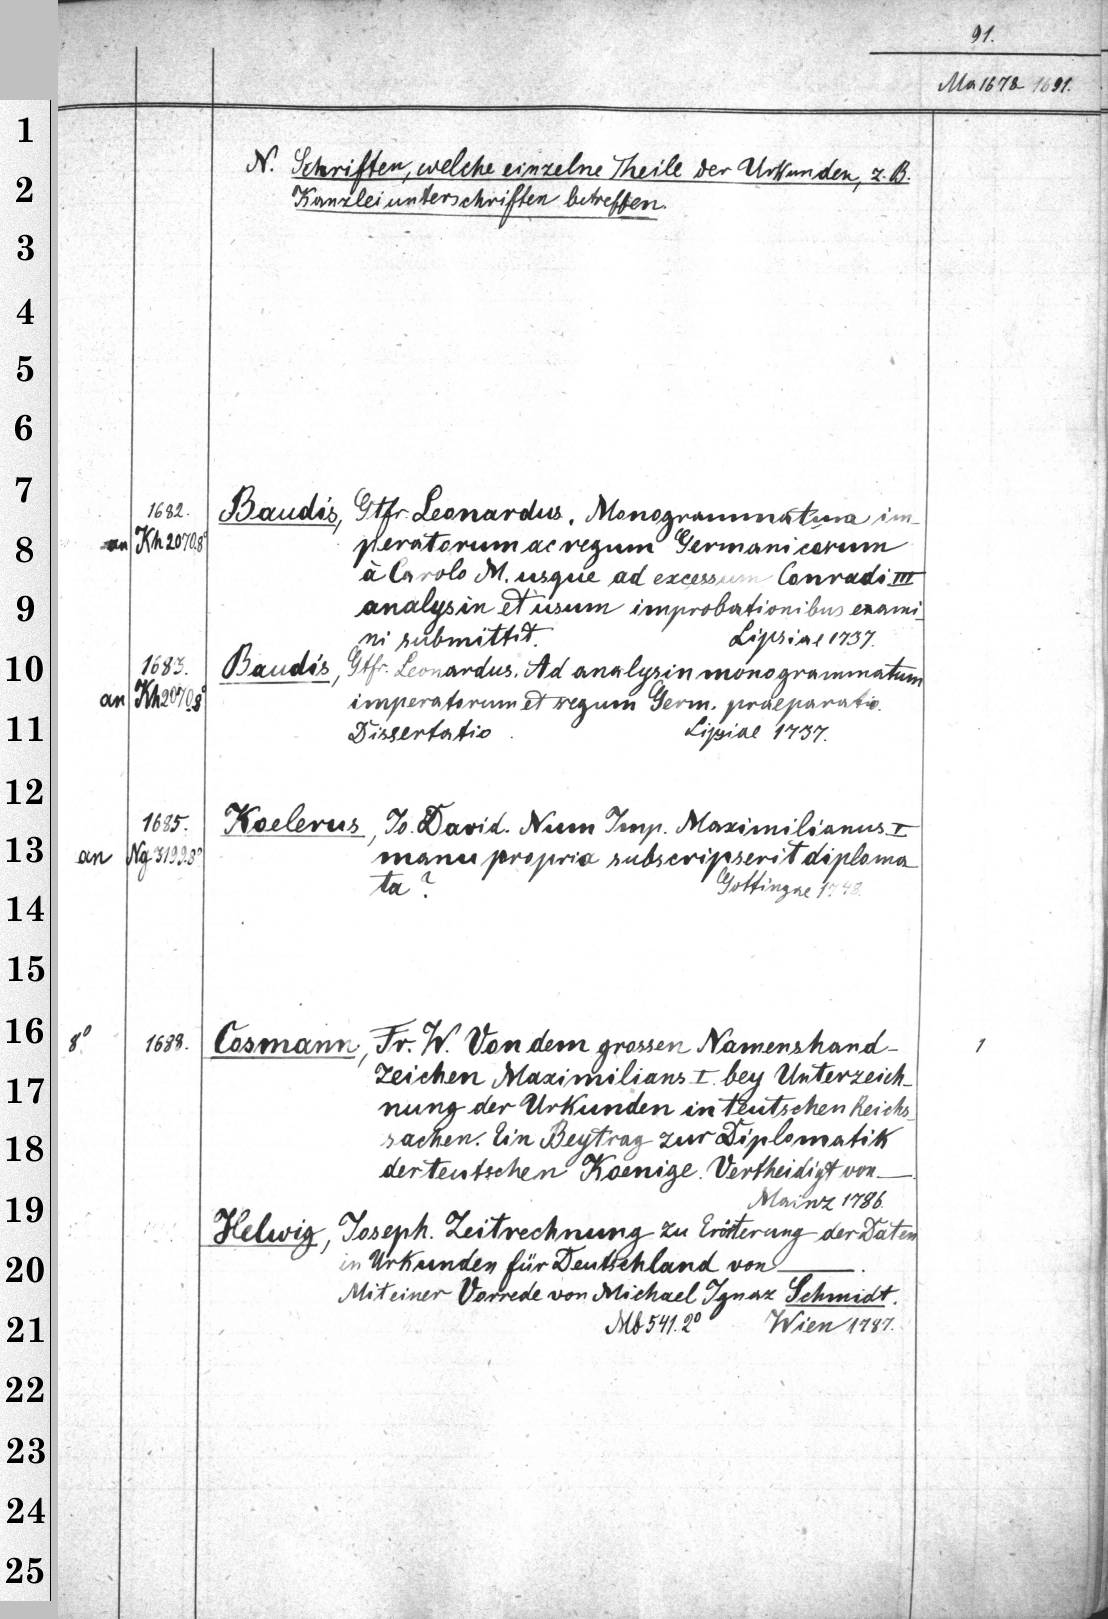 91.
Ma 1678 1691.
N. Schriften, welche einzelne Theile der Urkunden, z. B.
Kanzleiunterschriften betreffen.
1
2
3
4
5
6
7
8
9
10
11
12
13
14
15
16
17
18
19
20
21
22
23
24
25
1682. Baudis, Gtfr. Leonardus. Monogrammatum im-
an Kh 2070.8° peratorum ac regum Germanicorum
à Carolo M. usque ad excessum Conradi III
analysin et usum improbationibus exami-
ni submittit. Lipsiae 1737.
1683. Baudis, Gtfr. Leonardus. Ad analysin monogrammatum
an Kh 2070.8° imperatorum et regum Germ. praeparatio.
Dissertatio. Lipsiae 1737.
1685. Koelerus, Jo. David. Num Imp. Maximilianus I
an Ng 3199.8° manu propria subscripserit diploma
ta? Gottingae 1748.
8° 1688. Cosmann, Fr. W. Von dem grossen Namenshand- 1
zeichen Maximilians I. bey Unterzeich-
nung der Urkunden in teutschen Reichs-
sachen. Ein Beytrag zur Diplomatik
der teutschen Koenige. Vertheidigt von —.
Mainz 1786.
Helwig, Joseph. Zeitrechnung zu Erörterung der Daten
in Urkunden für Deutschland von —.
Mit einer Vorrede von Michael Ignaz Schmidt.
Mb 541. 2° Wien 1787.